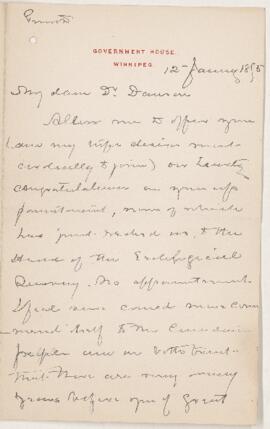 GOVERNMENT HOUSE.
WINNIPEG.
12 January 1895
My dear Dr. Dawson
Allow me to offer you
(and my wife desires most
cordially to join) our hearty
congratulations on your ap-
pointment, news of which
has just reached us, to the
of the Geological
Survey. No appointment
I feel sure could more com-
mend itself to the Canadian
people and we both trust
that there are very many
years before you of great